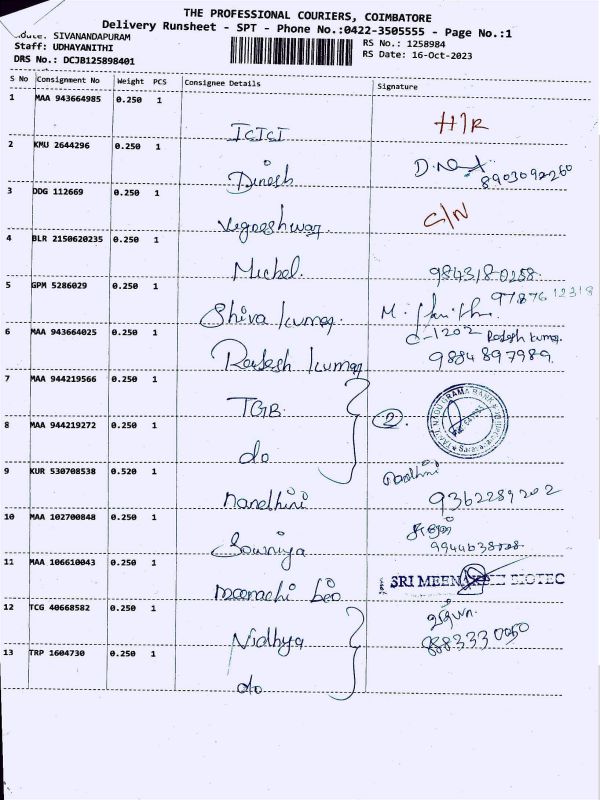 THE PROFESSIONAL COURIERS, COIMBATORE
Delivery Runsheet - SPT - Phone No.:0422-3505555 - Page No.:1
SIVANANDAPURAM
Staff: UDHAYANITHI
DRS No.: DCJB125898401
RS No.: 1258984
RS Date: 16-Oct-2023
S No Consignment No Weight PCS Consignee Details Signature
1 MAA 943664985 0.250 1
ICICI H/R
2 KMU 2644296 0.250 1
Dinesh 8903092260
3 DDG 112669 0.250 1
C/N
4 BLR 2150620235 0.250 1
Michel. 984318 0258
5 GPM 5286029 0.250 1
Shiva kumar. 97876 12318
6 MAA 943664025 0.250 1
Rajesh kumar 9884897989.
7 MAA 944219566 0.250 1
TGB. 2.
8 MAA 944219272 0.250 1
do
9 KUR 530708538 0.520 1
nandhini 9362289202
10 MAA 102700848 0.250 1
Sowmiya
11 MAA 106610043 0.250 1
SRI MEENAKSHI BIOTEC
12 TCG 40668582 0.250 1
Nidhya
13 TRP 1604730 0.250 1
do